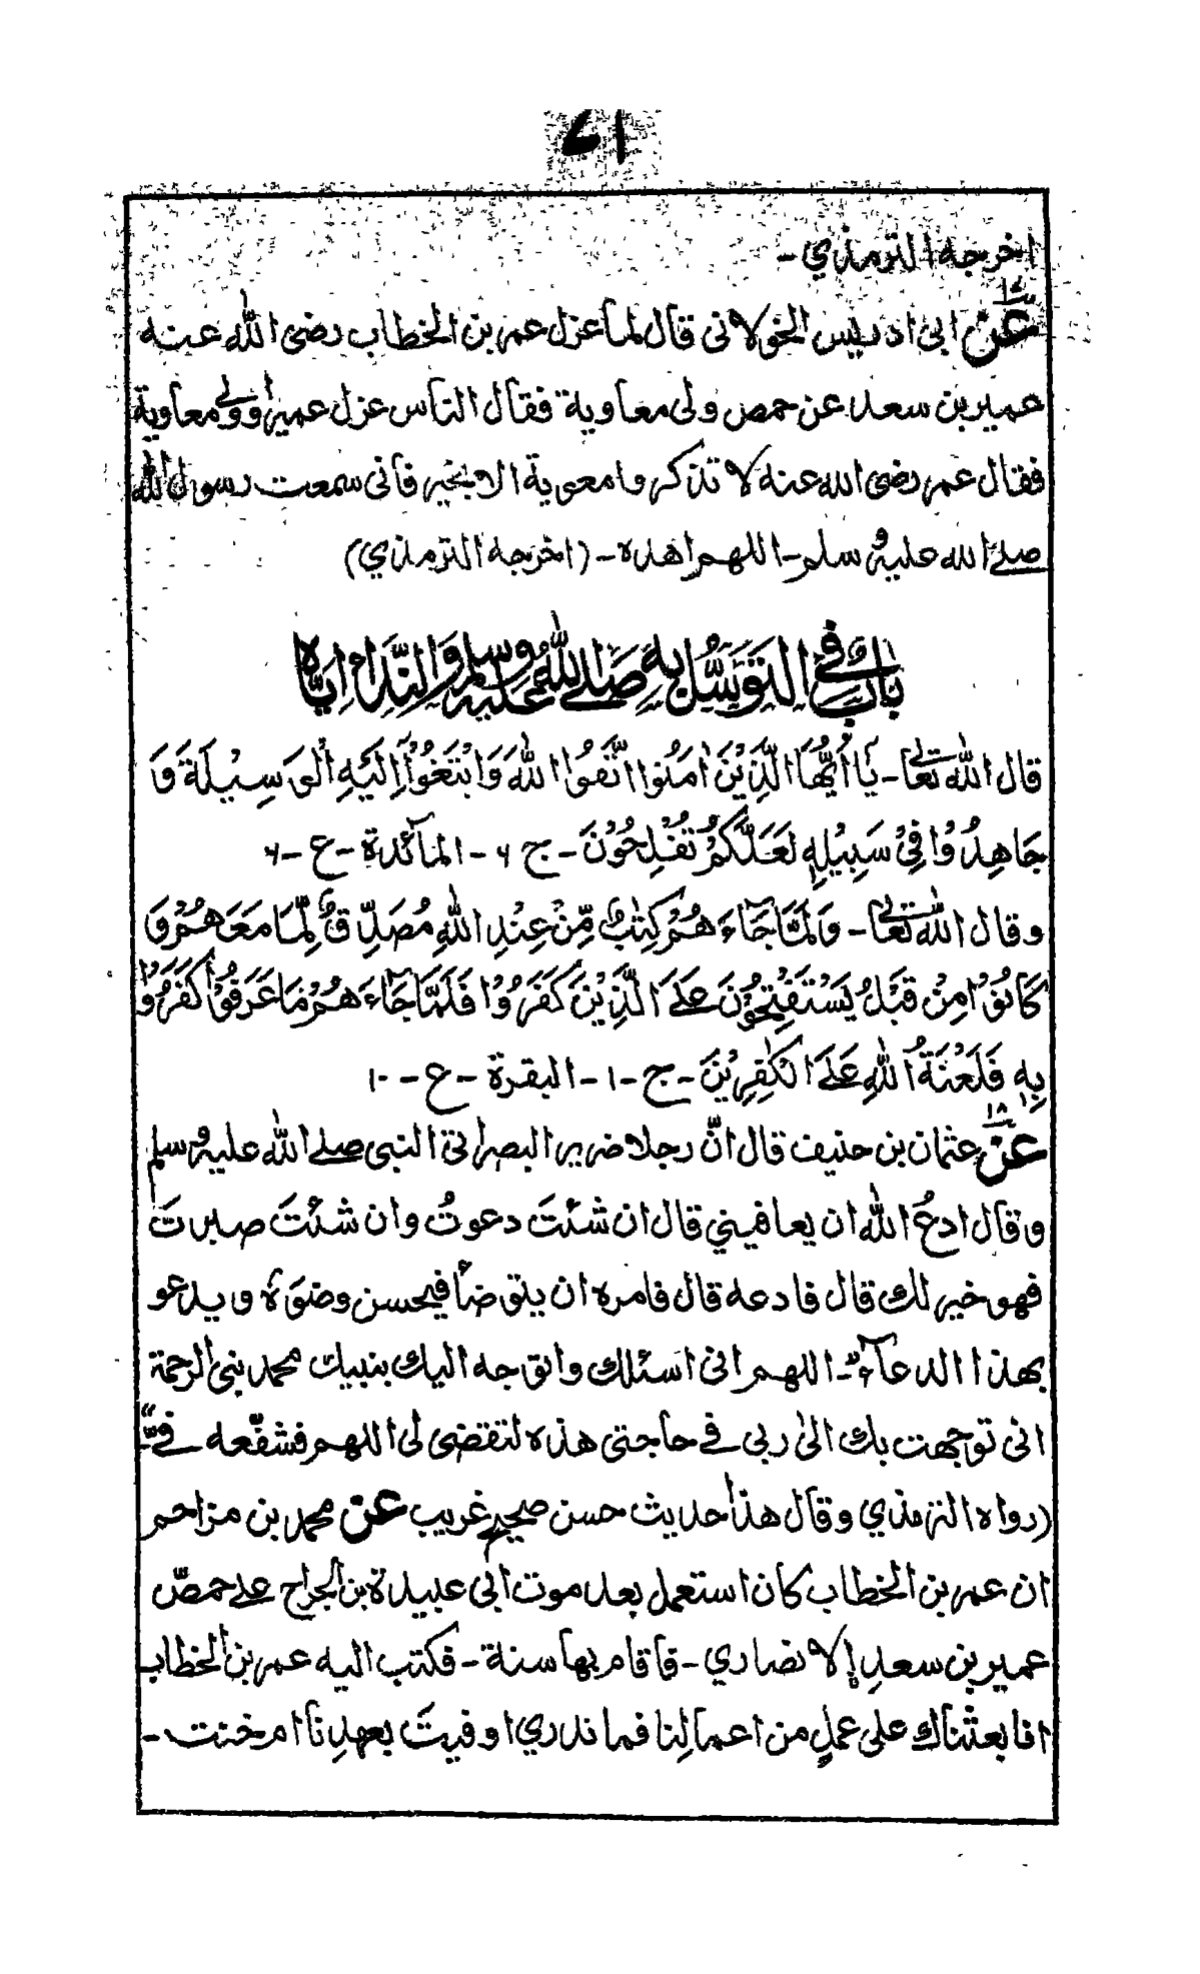 اخرجه الترمذي -
١٧
عن ابى ادريس الخولانى قال لما عزل عمر بن الخطاب رضى الله عنه
عمير بن سعد عن حمص ولى معاوية فقال الناس عزل عميرا وولى معاوية
فقال عمر رضى الله عنه لا تذكروا معوية الا بخير فانى سمعت رسول الله
صلے الله عليه وسلم - اللهم اهده - (اخرجه الترمذي)
بَابٌ فِي التَّوَسُّلِ بِهِ صَلے اللهُ عليه وسلم وَالنِّدَاءِ اِيَّاهُ
قال الله تعالى - يَا اَيُّهَا الَّذِيْنَ اٰمَنُوا اتَّقُوا اللهَ وَابْتَغُوْا اِلَيْهِ الْوَسِيْلَةَ وَ
جَاهِدُوْا فِيْ سَبِيْلِهٖ لَعَلَّكُمْ تُفْلِحُوْنَ - ج ۶ - المآئدة - ع - ۶
وقال الله تعالى - وَلَمَّا جَآءَ هُمْ كِتٰبٌ مِّنْ عِنْدِ اللهِ مُصَدِّقٌ لِّمَا مَعَهُمْ وَ
كَانُوْا مِنْ قَبْلُ يَسْتَفْتِحُوْنَ عَلَى الَّذِيْنَ كَفَرُوْا فَلَمَّا جَآءَ هُمْ مَا عَرَفُوْا كَفَرُوْا
بِهٖ فَلَعْنَةُ اللهِ عَلَى الْكٰفِرِيْنَ - ج - ١ - البقرة - ع - ١٠
١٨
عن عثمان بن حنيف قال انّ رجلا ضرير البصر اتى النبى صلے الله عليه وسلم
وقال ادعُ الله ان يعافيني قال ان شئتَ دعوتُ وان شئتَ صبرتَ
فهو خير لك قال فادعه قال فامره ان يتوضأ فيحسن وضوءه ويدعو
بهذا الدعآء - اللهم انى اسئلك واتوجه اليك بنبيك محمد نبى الرحمة
انى توجهت بك الىٰ ربى فے حاجتى هذه لتقضى لى اللهم فشفّعه فےّ -
(رواه الترمذي وقال هذا حديث حسن صحيح غريب عن محمد بن مزاحم
ان عمر بن الخطاب كان استعمل بعد موت ابى عبيدة بن الجراح علے حمصّ
عمير بن سعدِ إلانصاري - فاقام بها سنة - فكتب اليه عمر بن الخطاب
انا بعثناك على عملٍ من اعمالِنا فما ندري اوفيتَ بعهدِنا ام خنت -